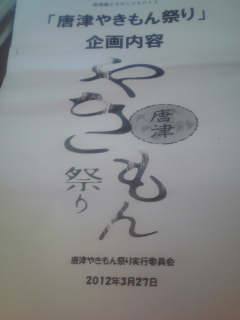 「唐津やきもん祭り」
企画内容
やき
もん
唐津
祭り
唐津やきもん祭り実行委員会
2012年3月27日